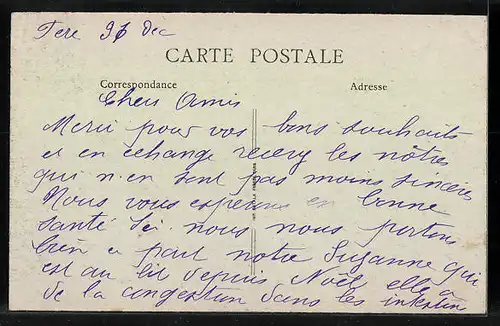 Fere 31 Dec
CARTE POSTALE
Correspondance
Adresse
Chers Amis
Merci pour vos bons souhaits
et en échange recevez les nôtres
qui n'en sont pas moins sincères
Nous vous espérons en bonne
santé Ici nous nous portons
bien a part notre Suzanne qui
est au lit depuis Noël elle a
de la congestion dans les intestins